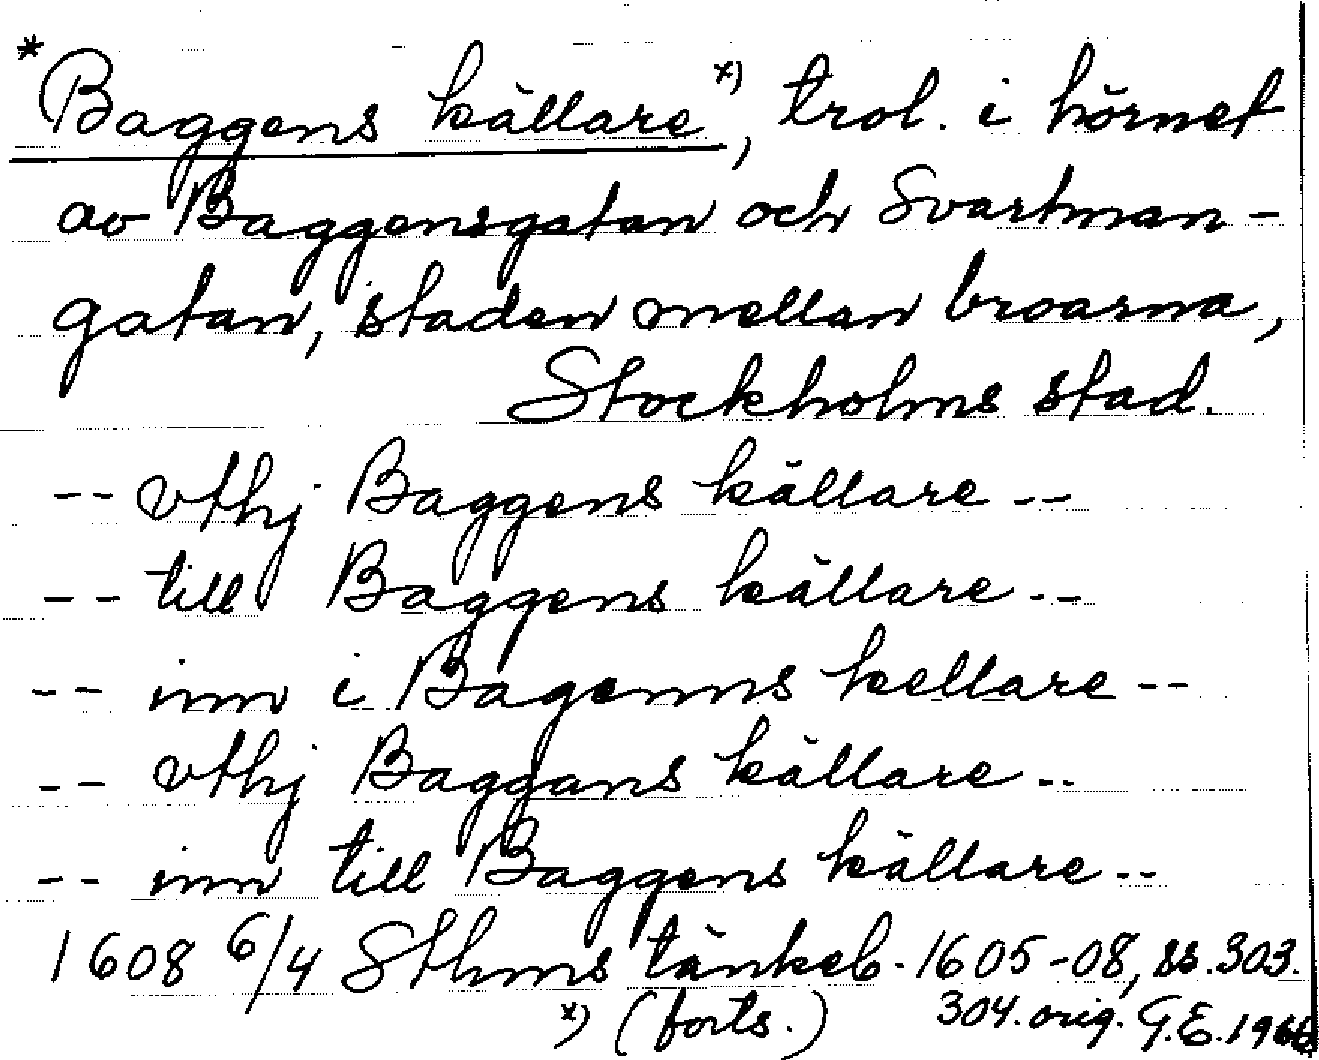 *Baggens källare x), trol. i hörnet
av Baggensgatan och Svartman-
gatan, staden mellan broarna,
Stockholms stad.
-- vthj Baggens källare --
-- till Baggens källare --
-- inn i Bagenns kellare --
-- vthj Baggans källare --
-- inn till Baggens källare --
1608 6/4 Sthms tänkeb. 1605-08, ss. 303.
x) (forts.) 304. orig. G.E.